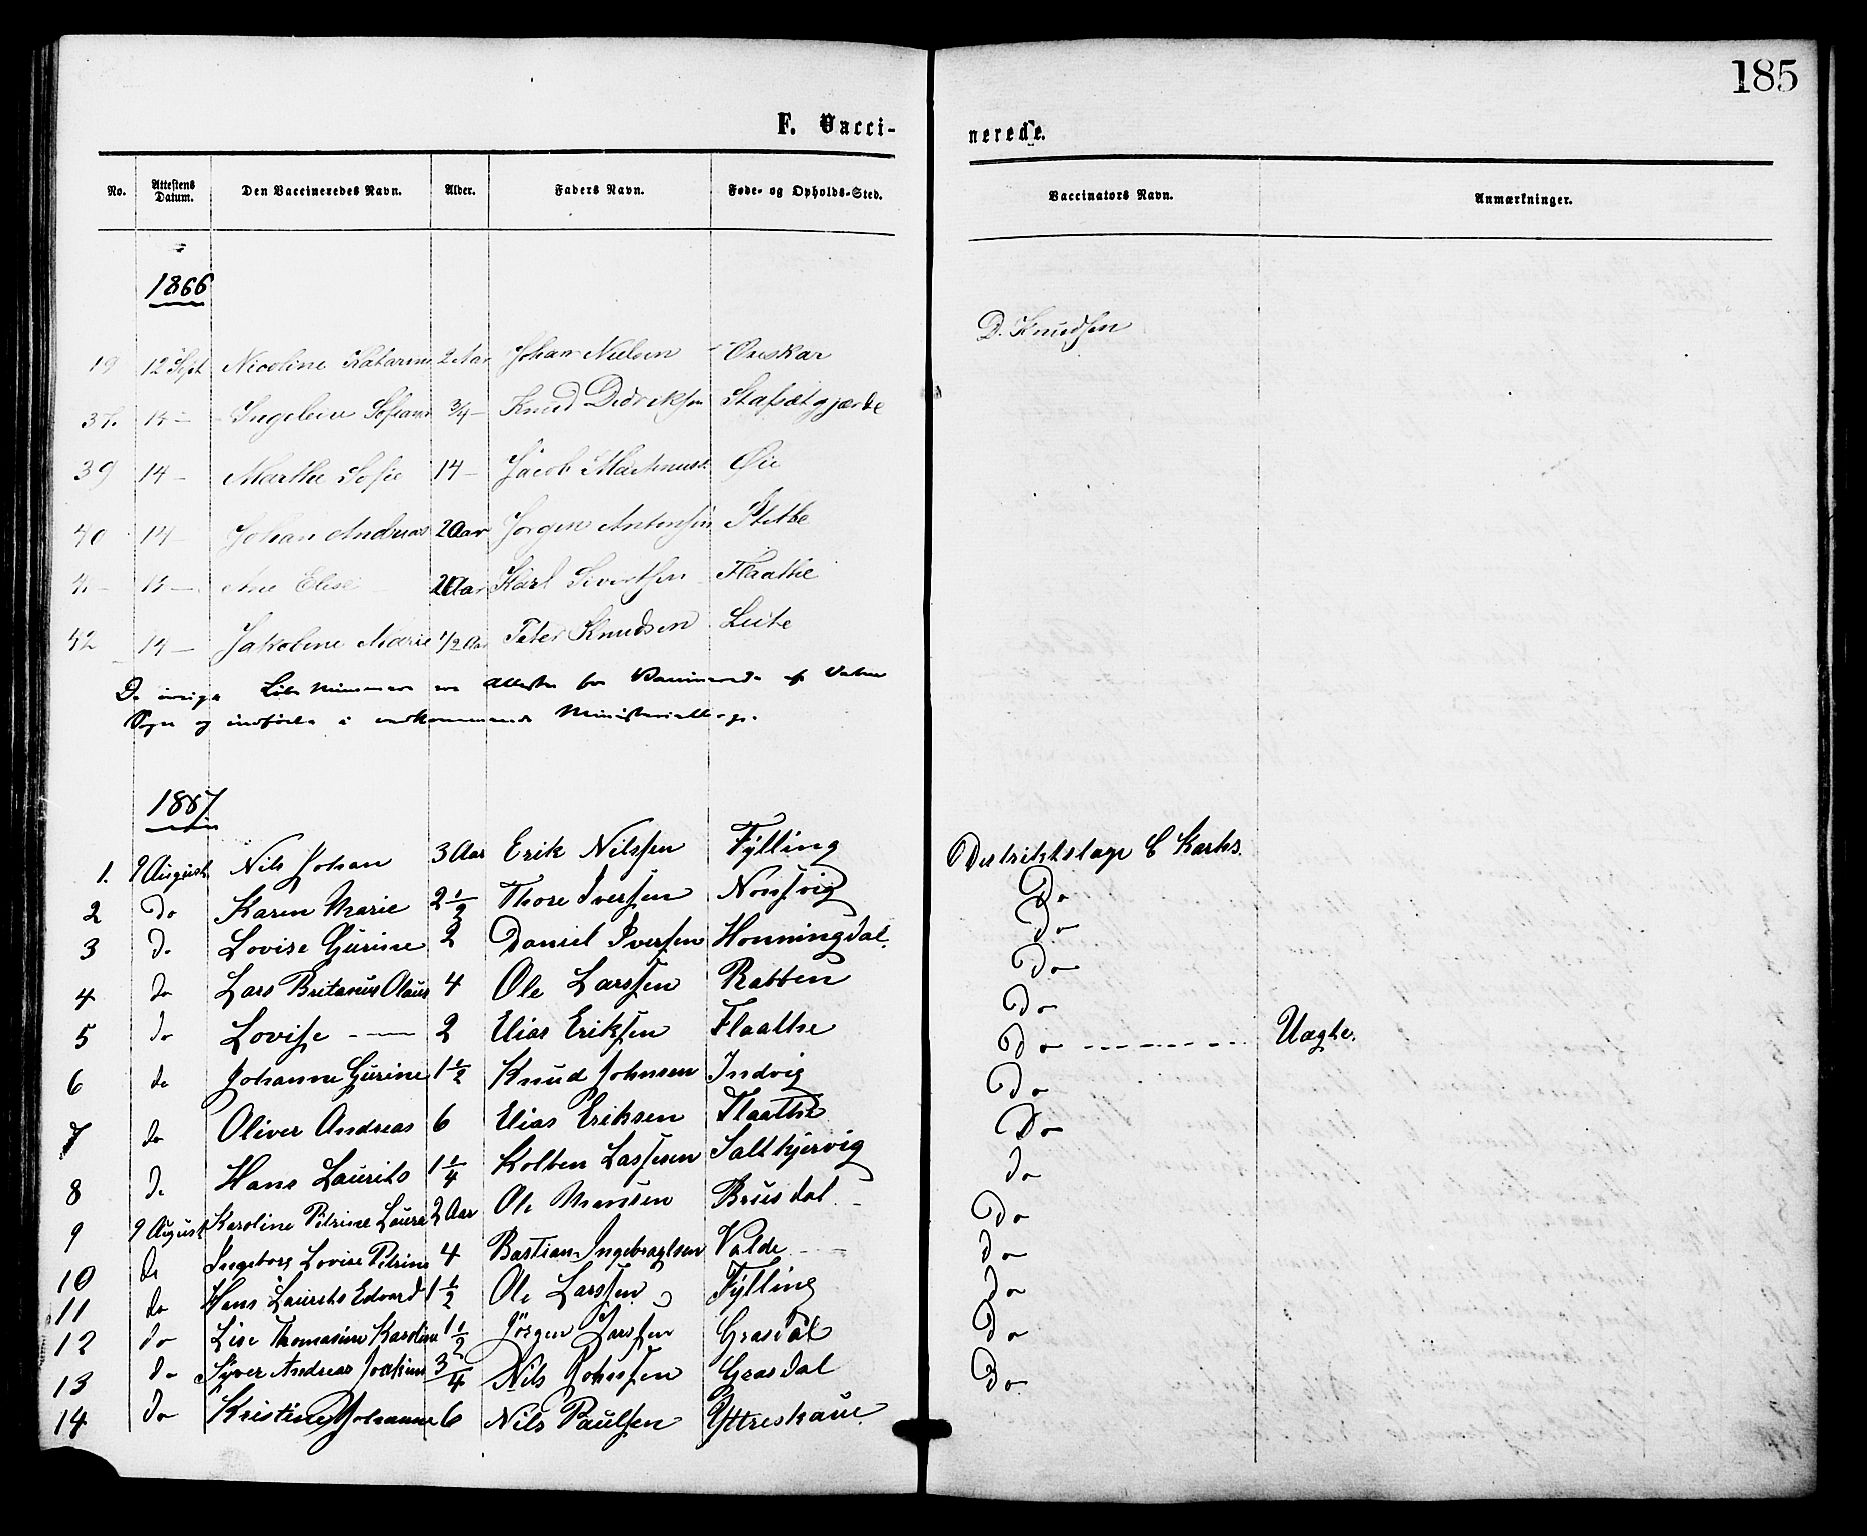 185
F. Vacci-
nerede.
No. Attestens Datum. Den Vaccineredes Navn. Alder. Faders Navn. Føde- og Opholds-Sted. Vaccinators Navn. Anmærkninger.
1866
19 12 Sept Nicoline Katarine 2 Aar Johan Nielsen D. Knudsen
37. 15 – Knud Didriksen Stafsætgjærde
39 14 – Marthe Sofie 14 – Jacob Øie
40 14 – Johan Andreas 2 Aar Jørgen Antonsen Slethe
– Ane Elise – 2 Aar Karl Sivertsen Flaathe
42 14 – Jakobine Marie 1/2 Aar Peter Knudsen Leite
De øvrige ere Attester for Vaccinerede af
Sogn og indførte i vedkommende Ministerialbog.
1867
1. 9 August Nils Johan 3 Aar Erik Nilssen Fylling Distriktslæge C Karhs.
2 Do Karen Marie 2 1/2 Thore Iversen Nonsvig Do
3 Do Lovise Gurine 2 Daniel Iversen Honningdal. Do
4 do Lars Britanus Olaus 4 Ole Larssen Rabben Do
5 do Lovise - — 2 Elias Eriksen Flaathe Do
6 do Johanne Gurine 1 1/2 Knud Johnsen Indvig Do Uægte.
7 do Oliver Andreas 6 Elias Eriksen Flaathe Do
8 do Hans Laurits 1 1/4 Kolben Lassesen Saltkjervig Do
9 9 August Karoline Petrine Laura 2 Aar Ole Hansen Brusdal do
10 do Ingeborg Lovise Petrine 4 Bastian Ingebragtsen Valde Do
11 do Hans Laurits Edvard 1 1/2 Ole Larssen Fylling do
12 do Lise Thomasine Karoline 1 1/2 Jørgen Larssen Grasdal do
13 do Syver Andreas Joakim 3/4 Nils Johnssen Grasdal Do
14 do Kristine Johanne 6 Nils Paulsen Yttreskaue Do